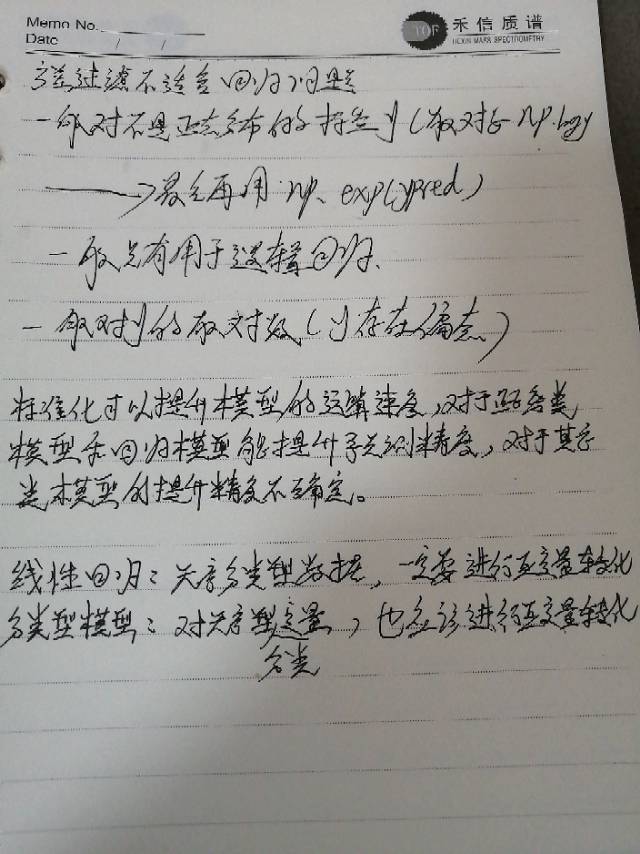 Memo No.
Date / /
TOF 禾信质谱
HEXIN MASS SPECTROMETRY
方差过滤不适合回归问题
一般对不是正态分布的标签y(取对数 np.logy
→最后再用 np.exp(ypred)
一般只有用于逻辑回归、
一般对y的取对数(y存在偏态)
标准化可以提升模型的运算速度,对于距离类
模型和回归模型能提升预测精度,对于其它
类模型的提升精度不确定。
线性回归:无序分类型数据,一定要进行亚变量转化
分类型模型:对无序型变量,也应该进行亚变量转化
分类